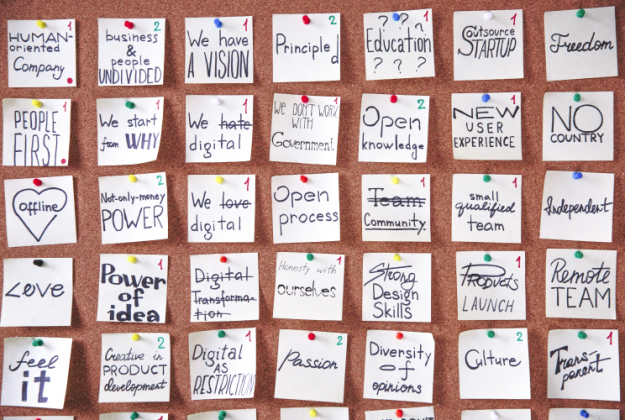 1
HUMAN-
oriented
Company
2
business
&
people
UNDIVIDED
1
We have
A VISION
1
Principled
1
? ? ?
Education
? ? ?
1
Outsource
STARTUP
Freedom
1
PEOPLE
FIRST.
1
We start
from WHY
1
We hate
digital
1
WE DON'T WORK
WITH
Government
2
Open
knowledge
1
NEW
USER
EXPERIENCE
NO
COUNTRY
1
offline
2
Not-only-money
POWER
1
We love
digital
1
Open
process
1
Team
Community.
1
small
qualified
team
Independent
Love
1
Power
of
idea
1
Digital
Transforma-
tion
1
Honesty with
ourselves
Strong
Design
Skills
1
Products
LAUNCH
Remote
TEAM
feel
it
2
Creative in
PRODUCT
development
1
Digital
AS
RESTRICTION
2
Passion
Diversity
of
opinions
2
Culture
Trans
parent